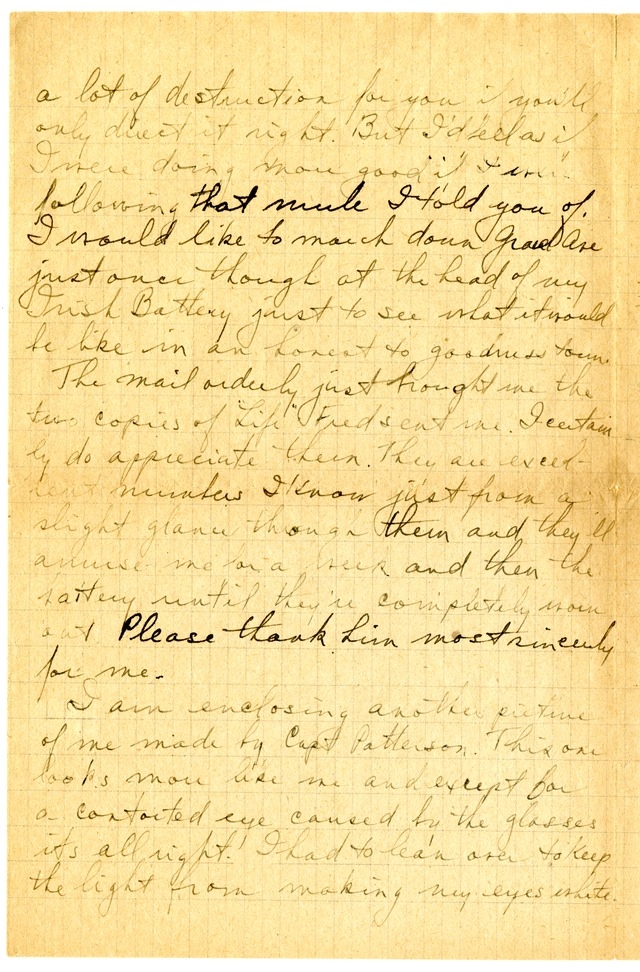 a lot of destruction for you if you'll
only direct it right. But I'd feel as if
I were doing more good if I was
following that mule I told you of.
I would like to march down Grand Ave
just once though at the head of my
Irish Battery just to see what it would
be like in an honest to goodness town.
The mail orderly just brought me the
two copies of "Life" Fred sent me. I certain
ly do appreciate them. They are excel-
lent numbers I know just from a
slight glance through them and they'll
amuse me for a week and then the
battery until they're completely worn
out Please thank him most sincerely
for me.
I am enclosing another picture
of me made by Capt Patterson. This one
looks more like me and except for
a contorted eye caused by the glasses
it's all right. I had to lean over to keep
the light from making my eyes white.